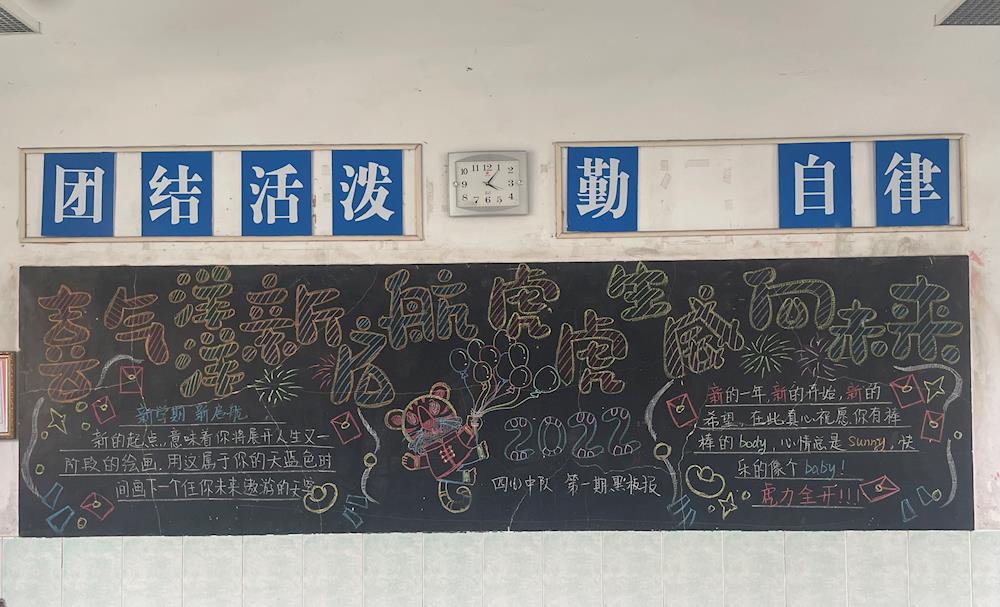 团结活泼
勤 自律
喜气洋洋新征启航虎虎生威向未来
新学期 新启航
新的起点,意味着你将展开人生又一
阶段的绘画,用这属于你的天蓝色时
间画下一个任你未来遨游的天空
2022
四(1)中队 第一期黑板报
新的一年,新的开始,新的
希望,在此真心祝愿你有棒
棒的body,心情总是sunny,快
乐的像个baby!
虎力全开!!!
12
1
2
3
4
5
6
7
8
9
10
11